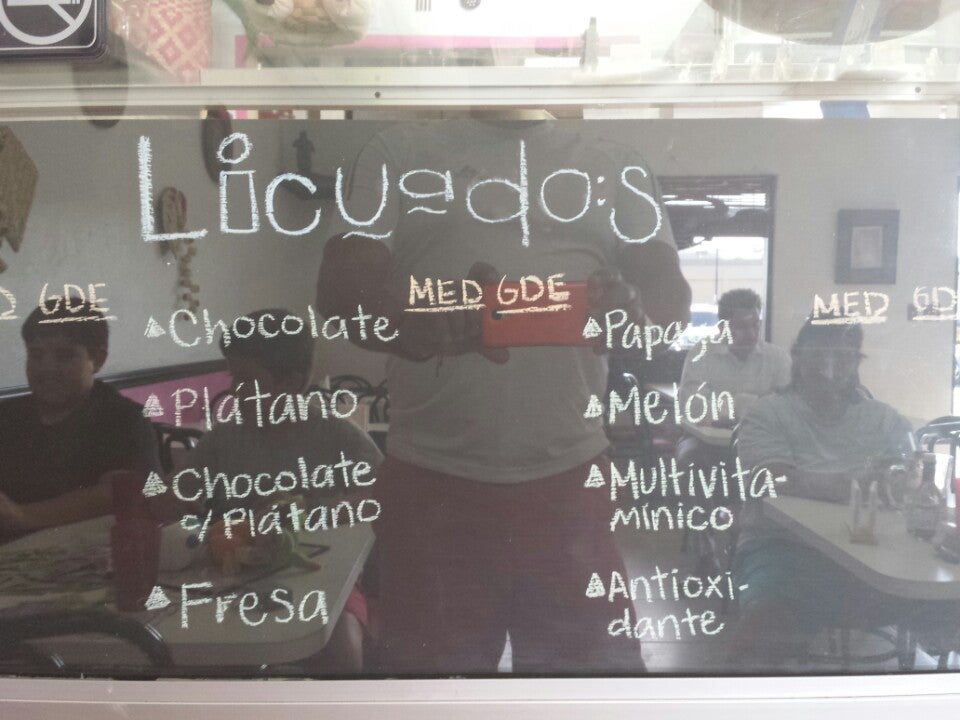 Licuados
GDE
MED GDE
MED
Chocolate
Plátano
Chocolate
c/ Plátano
Fresa
Papaya
Melón
Multivita-
mínico
Antioxi-
dante